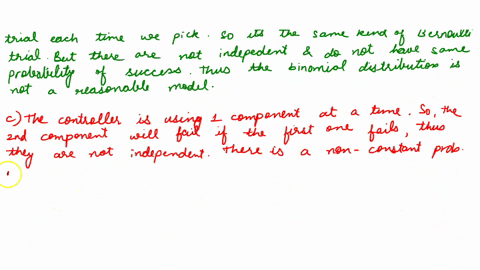 trial each time we pick. So its the same kind of Bernoulli
trial. But there are not indepedent & do not have same
probability of success. Thus the binomial distribution is
not a reasonable model.
c) The controller is using 1 component at a time. So, the
2nd component will fail if the first one fails, thus
they are not independent. There is a non-constant prob.